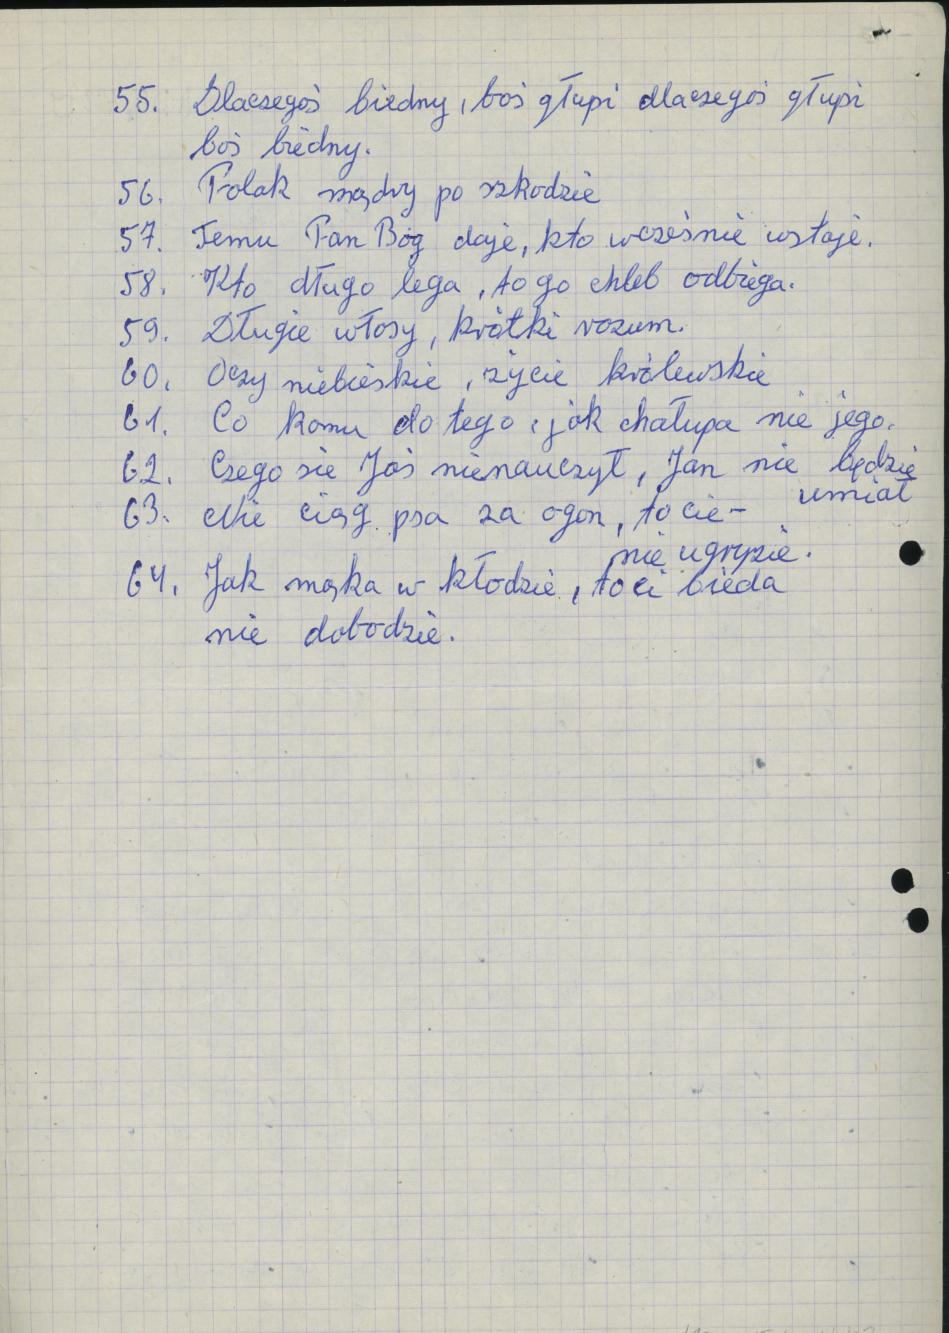 55. Dlaczegoś biedny, boś głupi dlaczegoś głupi
boś biedny.
56. Polak mądry po szkodzie
57. Temu Pan Bóg daje, kto wcześnie wstaje.
58. Kto długo lega, to go chleb odbiega.
59. Długie włosy, krótki rozum.
60. Oczy niebieskie, życie królewskie
61. Co komu do tego, jak chałupa nie jego.
62. Czego sie Jaś nienauczył, Jan nie będzie
umiał
63. Nie ciąg psa za ogon, to cie-
nie ugryzie.
64. Jak mąka w kłodzie, to ci bieda
nie dobodzie.